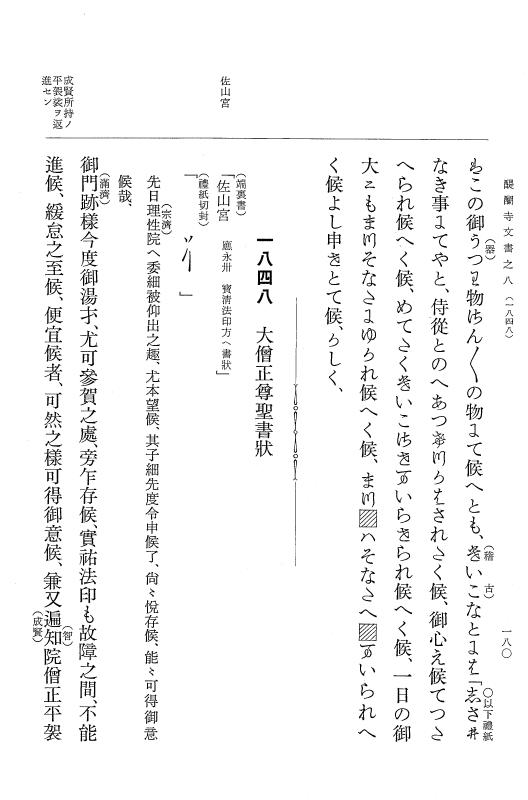 醍醐寺文書之八（一八四八）
一八〇
この御うつわ物はちん〳〵の物にて候へとも、きいこなとには「志さ井
（器）
（稽古）
〇以下禮紙
なき事にてやと、侍從とのへあつけらされたく候、御心え候てつき
へられ候へく候、めてたくきいこはきてもいらせられ候へく候、一日の御
大ニもまいりそなたにゆられ候へく候、まいり▨ハそなたへ▨ていられへ
く候よし申きとて候、らしく、
一八四八　大僧正尊聖書狀
（端裏書）
「佐山宮　應永卅　寶淸法印方へ書狀」
（禮紙切封）
「　　」
佐山宮
先日理性院へ委細被仰出之趣、尤本望候、其子細先度令申候了、尙〻悅存候、能〻可得御意
（宗濟）
候哉、
御門跡樣今度御湯才、尤可參賀之處、旁乍存候、實祐法印も故障之間、不能
（滿濟）
成賢所持ノ
平袈裟ヲ返
進セン
進候、緩怠之至候、便宜候者、可然之樣可得御意候、兼又遍知院僧正平袈
（智）
（成賢）